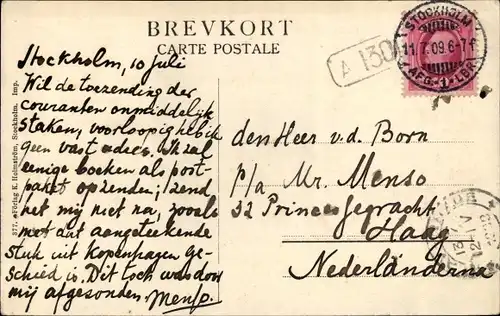 BREVKORT
CARTE POSTALE
Stockholm, 10 juli
Wil de toezending der
couranten onmiddelijk
staken, voorloopig heb ik
geen vast adres. Ik zal
eenige boeken als post-
paket opzenden; zend
het mij niet na, zooals
met dat aangeteekende
stuk uit Kopenhagen ge-
schied is. Dit toch was door
mij afgezonden. Menso.
den Heer v.d. Born
p/a Mr. Menso
32 Princessegracht
Haag
Nederländerna
A 130
STOCKHOLM
11.7.09.6-7
AFG. 1 LBR
Förlag K. Holmström, Stockholm. Imp.